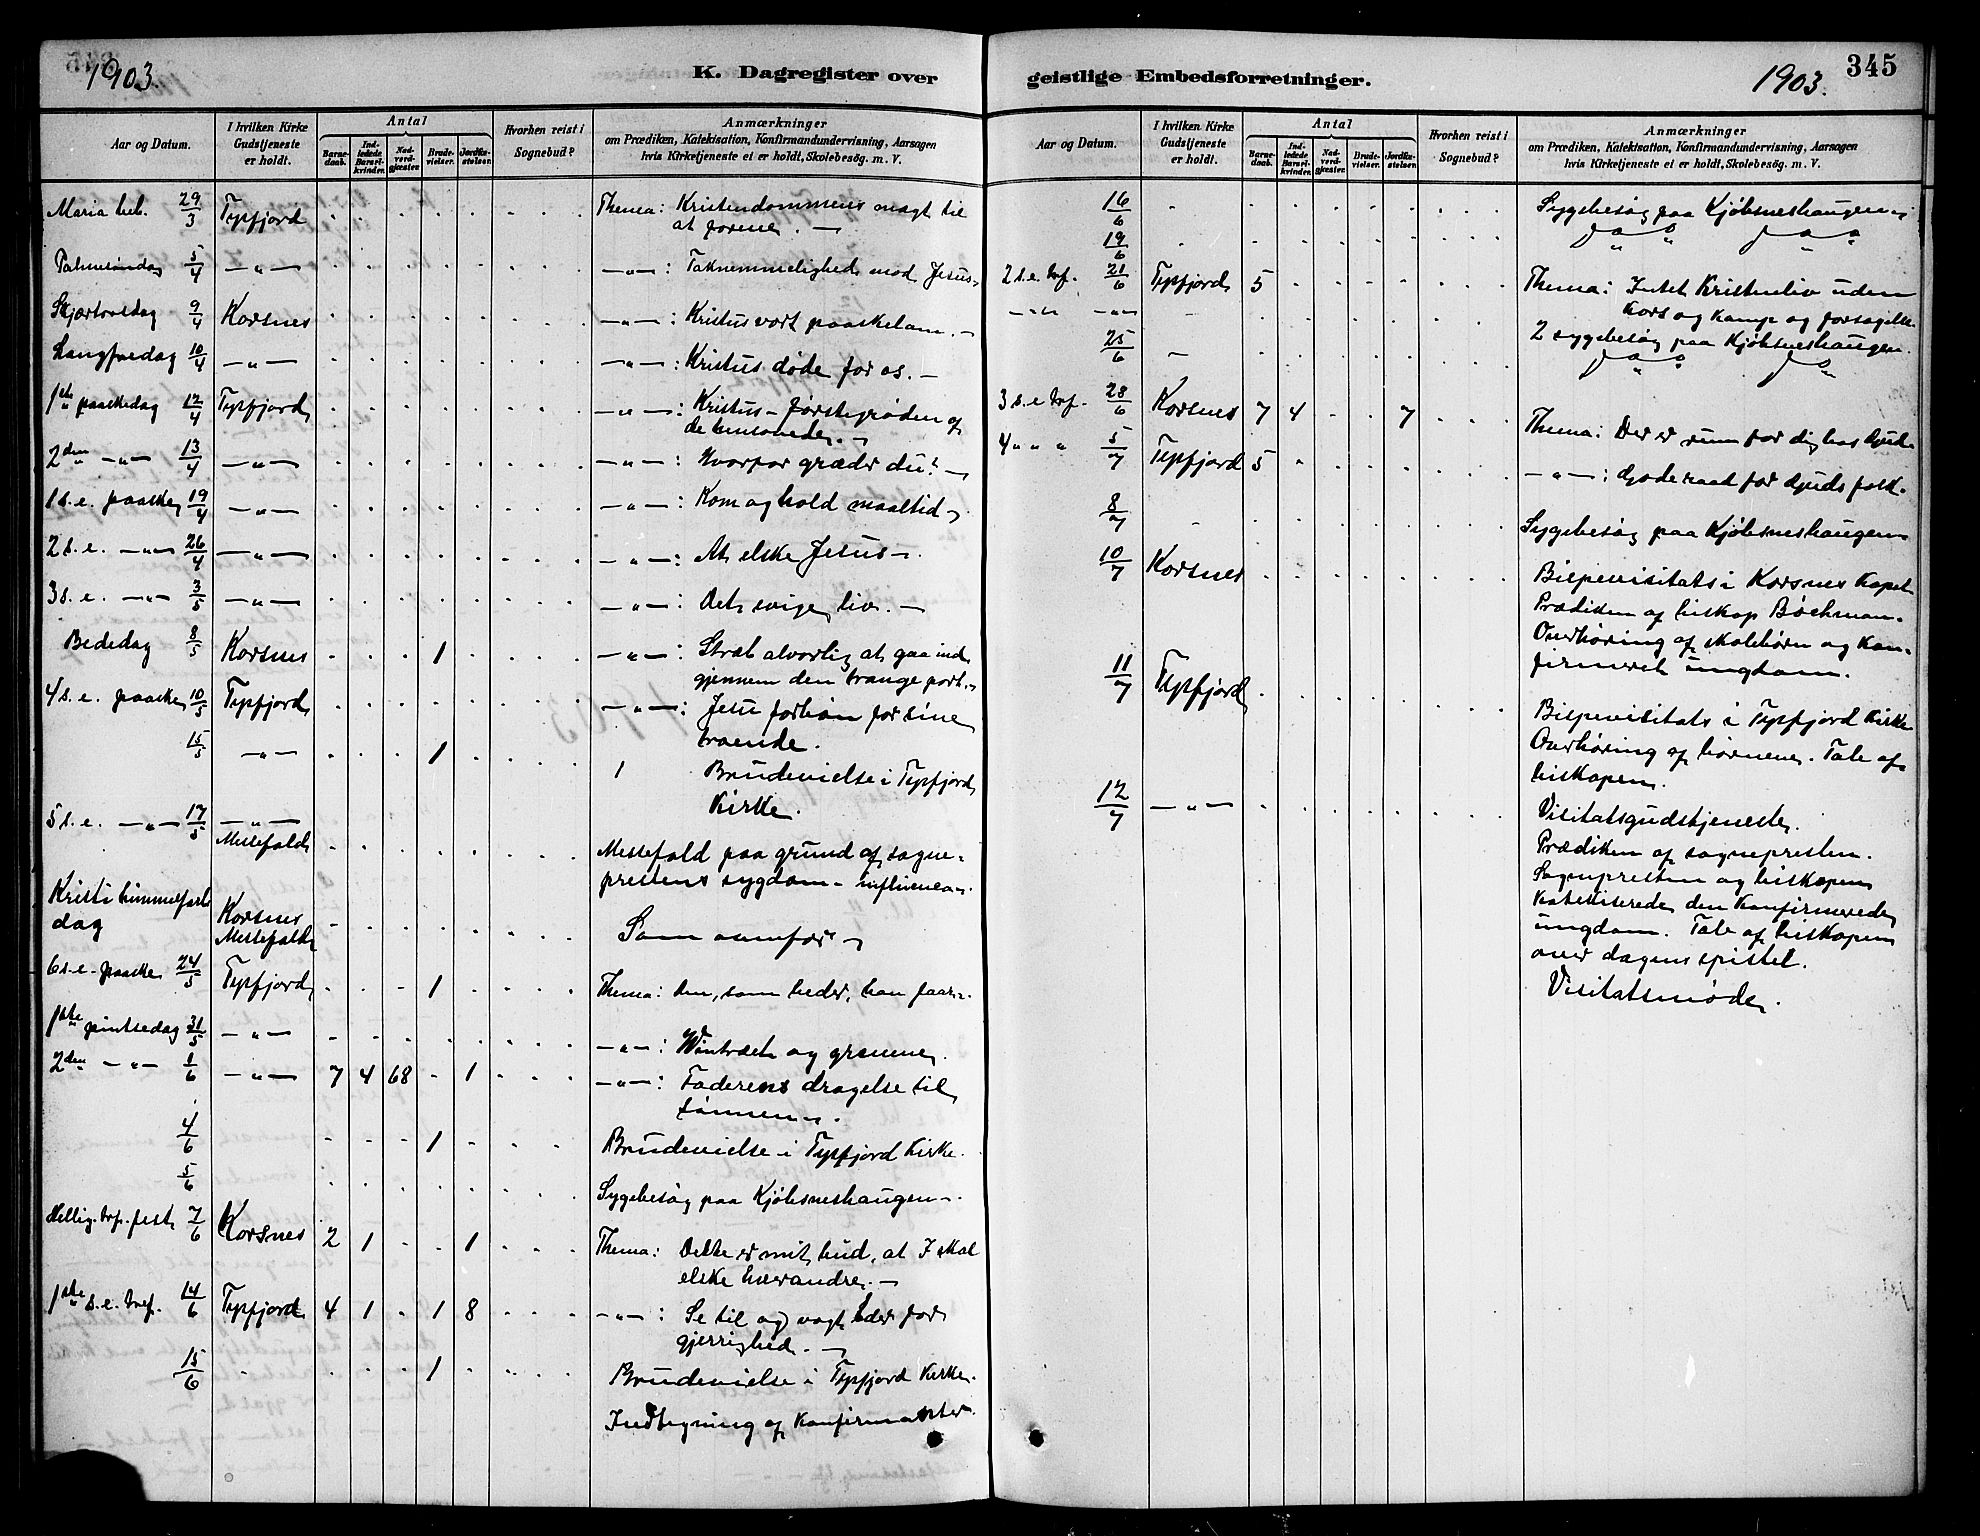 1903.
K. Dagregister over
Aar og Datum.
I hvilken Kirke Gudstjeneste er holdt.
Antal
Barnedaab.
Indledede Barselkvinder.
Nadverdgjester.
Brudevielser.
Jordfæstelser.
Hvorhen reist i Sognebud?
Anmærkninger
om Prædiken, Katekisation, Konfirmandundervisning, Aarsagen
hvis Kirketjeneste ei er holdt, Skolebesög. m. V.
Maria beb. 29/3 Tysfjord Thema: Kristendommens magt til
at forene. —
Palmesøndag 5/4 — " — — " — : Taknemmelighed mod Jesus —
Skjærtorsdag 9/4 Korsnes — " — : Kristus vort paaskelam. —
Langfredag 10/4 — " — — " — : Kristus døde for os. —
1ste paaskedag 12/4 Tysfjord — " — : Kristus — førstegrøden af
de hensovede. —
2den — " — 13/4 — " — — " — : Hvorfor græder du? —
1 s. e. paaske 19/4 — " — — " — : Kom og hold maaltid —
2 s. e. — " — 26/4 — " — — " — : At elske Jesus —.
3 s. e. — " — 3/5 — " — — " — : Det evige liv. —
Bededag 8/5 Korsnes 1 — " — : Stræb alvorlig at gaa ind
gjennem den trange port. —
4 s. e. paaske 10/5 Tysfjord — " — : Jesu forbøn for sine
troende.
15/5 — " — 1 1 Brudevielse i Tysfjord
Kirke.
5 s. e. — " — 17/5 — " —
Messefald Messefald paa grund af sogne-
prestens sygdom — influenca —.
Kristi himmelfarts
dag Korsnes
Messefald Som ovenfor —
6 s. e. paaske 24/5 Tysfjord 1 Thema: Den, som beder, han faar —.
1ste pintsedag 31/5 — " — — " — : Vintræet og grenene.
2den — " — 1/6 — " — 7 4 68 - 1 — " — : Faderens dragelse til
sønnen —.
4/6 1 Brudevielse i Tysfjord Kirke.
5/6 Sygebesøg paa Kjøbsneshaugen —.
Hellig. trf. fest 7/6 Korsnes 2 1 - - 1 Thema: Dette er mit bud, at I skal
elske hverandre. —
1ste s. e. tref. 14/6 Tysfjord 4 1 - 1 8 — " — : Se til og vogt Eder for
gjerrighed. —
15/6 1 Brudevielse i Tysfjord Kirke.
Indtegning af Konfirmanter.
geistlige Embedsforretninger.
1903.
345
Aar og Datum.
I hvilken Kirke Gudstjeneste er holdt.
Antal
Barnedaab.
Indledede Barselkvinder.
Nadverdgjester.
Brudevielser.
Jordfæstelser.
Hvorhen reist i Sognebud?
Anmærkninger
om Prædiken, Katekisation, Konfirmandundervisning, Aarsagen
hvis Kirketjeneste ei er holdt, Skolebesög. m. V.
16/6 Sygebesøg paa Kjøbsneshaugen —
19/6
2 s. e. trf. 21/6 Tysfjord 5 Thema: Intet Kristenliv uden
Kors og Kamp og forsagelse.
— " — — " — 2 sygebesøg paa Kjøbsneshaugen.
25/6
3 s. e. trf. 28/6 Korsnes 7 4 - - 7 Thema: Der er rum for dig hos Gud.
4 " " " 5/7 Tysfjord 5 — " — : Gode raad for Guds folk.
8/7 Sygebesøg paa Kjøbsneshaugen
10/7 Korsnes Bispevisitats i Korsnes Kapel
Prædiken af biskop Bøckman.
Overhøring af skolebørn og kon-
firmeret ungdom.
11/7 Tysfjord Bispevisitats i Tysfjord Kirke
Overhøring af børnene. Tale af
biskopen.
12/7 — " — Visitatsgudstjeneste.
Prædiken af sognepresten.
Sognepresten og biskopen
katekiserede den konfirmerede
ungdom. Tale af biskopen
over dagens epistel.
Visitatsmøde.